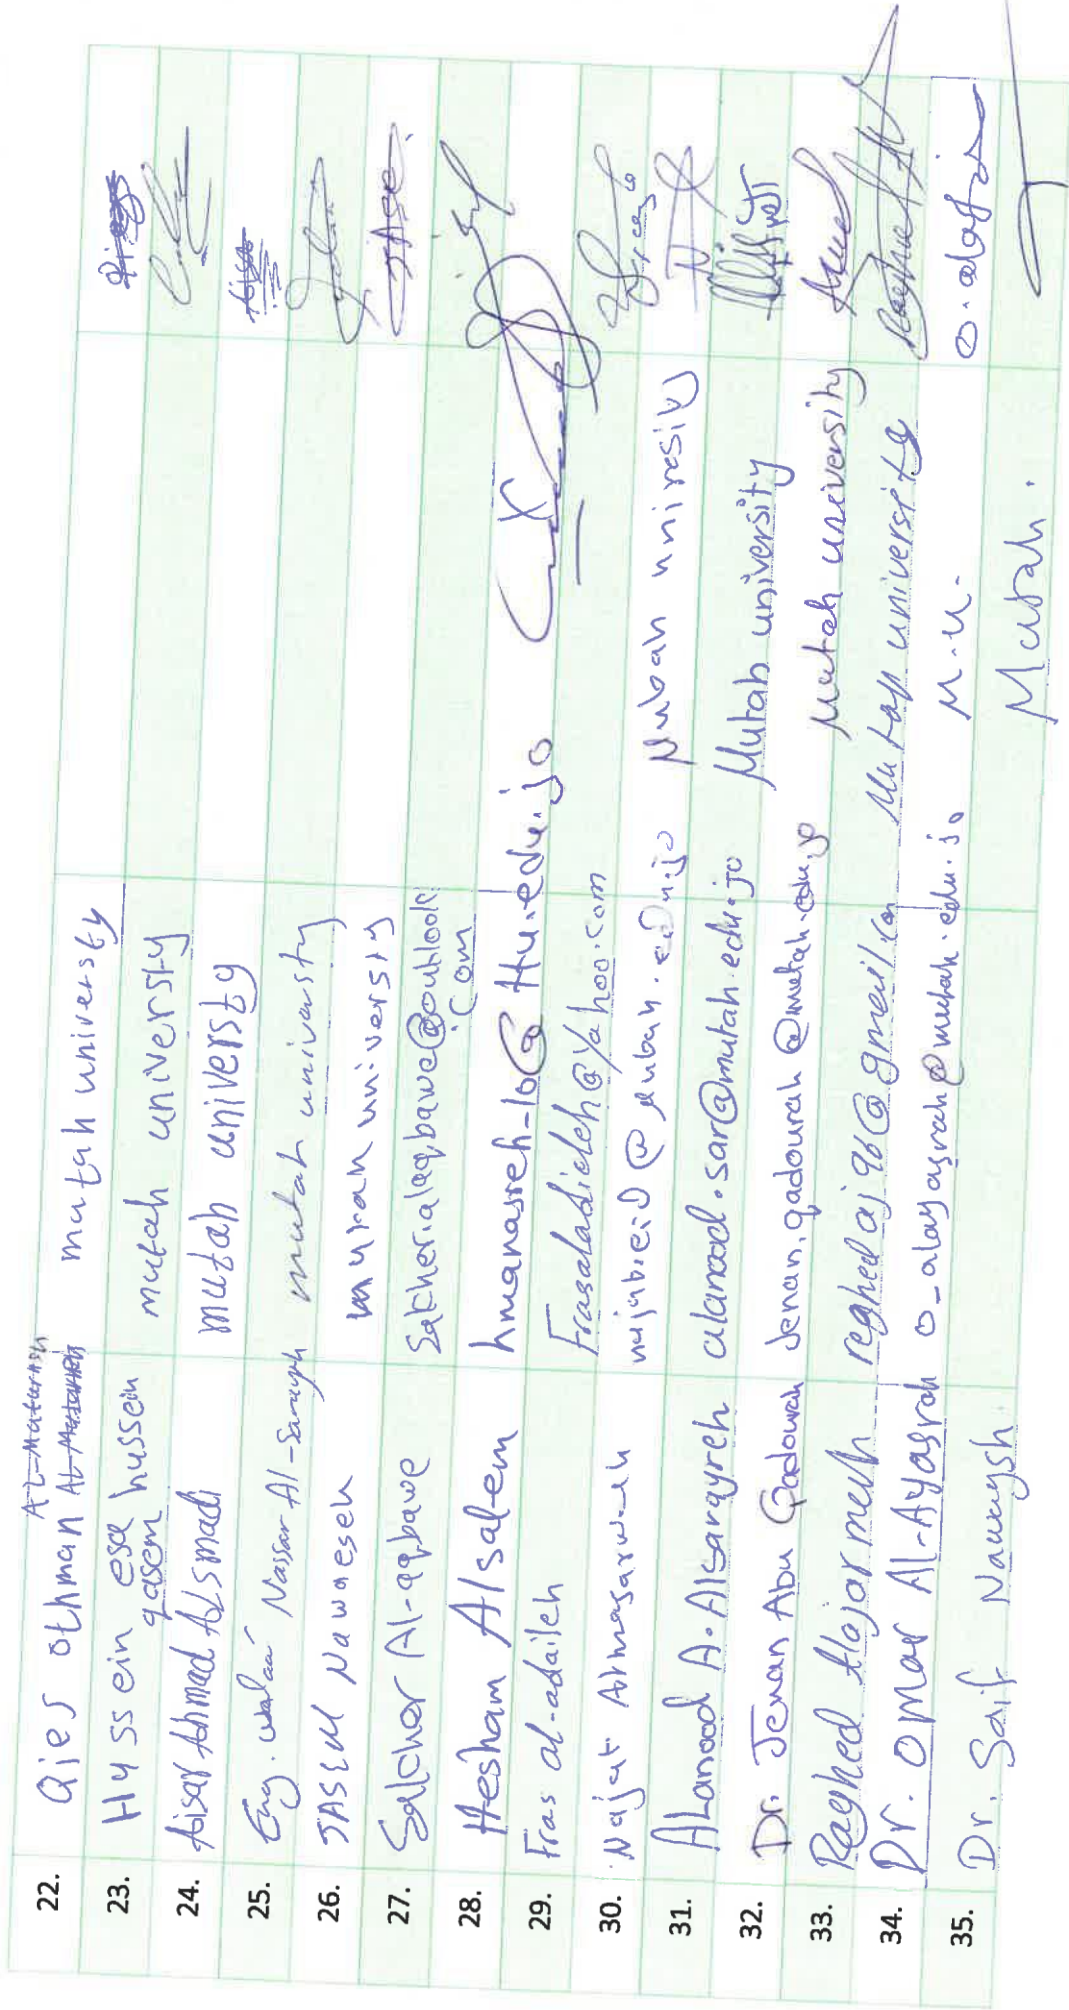 22. Qies othman Al-Matarneh mutah university
23. Hussein esa qasem hussein mutah university
24. Aisar Ahmad ALsmadi mutah university
25. Eng. walaa' Nassar Al-Sarayrh mutah university
26. JASEM Nawaeseh mutah university
27. Sakher Al-aqbawe Sakher.alaqbawe@outlook.com
28. Hesham Alsalem hmanasreh_10@Htu.edu.jo
29. Fras al-adaileh Frasaladieleh@yahoo.com
30. Najat Almasarweh najabieid@mutah.edu.jo Mutah university
31. ALanood A. Alsarayreh alanood.sar@mutah.edu.jo Mutah university
32. Dr. Jenan Abu Qadourah Jenan.qadourah@mutah.edu.jo Mutah university
33. Raghed Hajarmeh reghedaj96@gmail.com Mutah university
34. Dr. Omar Al-Ayasrah o_alayasrah@mutah.edu.jo M.U.
35. Dr. Saif Nawaysh Mutah.